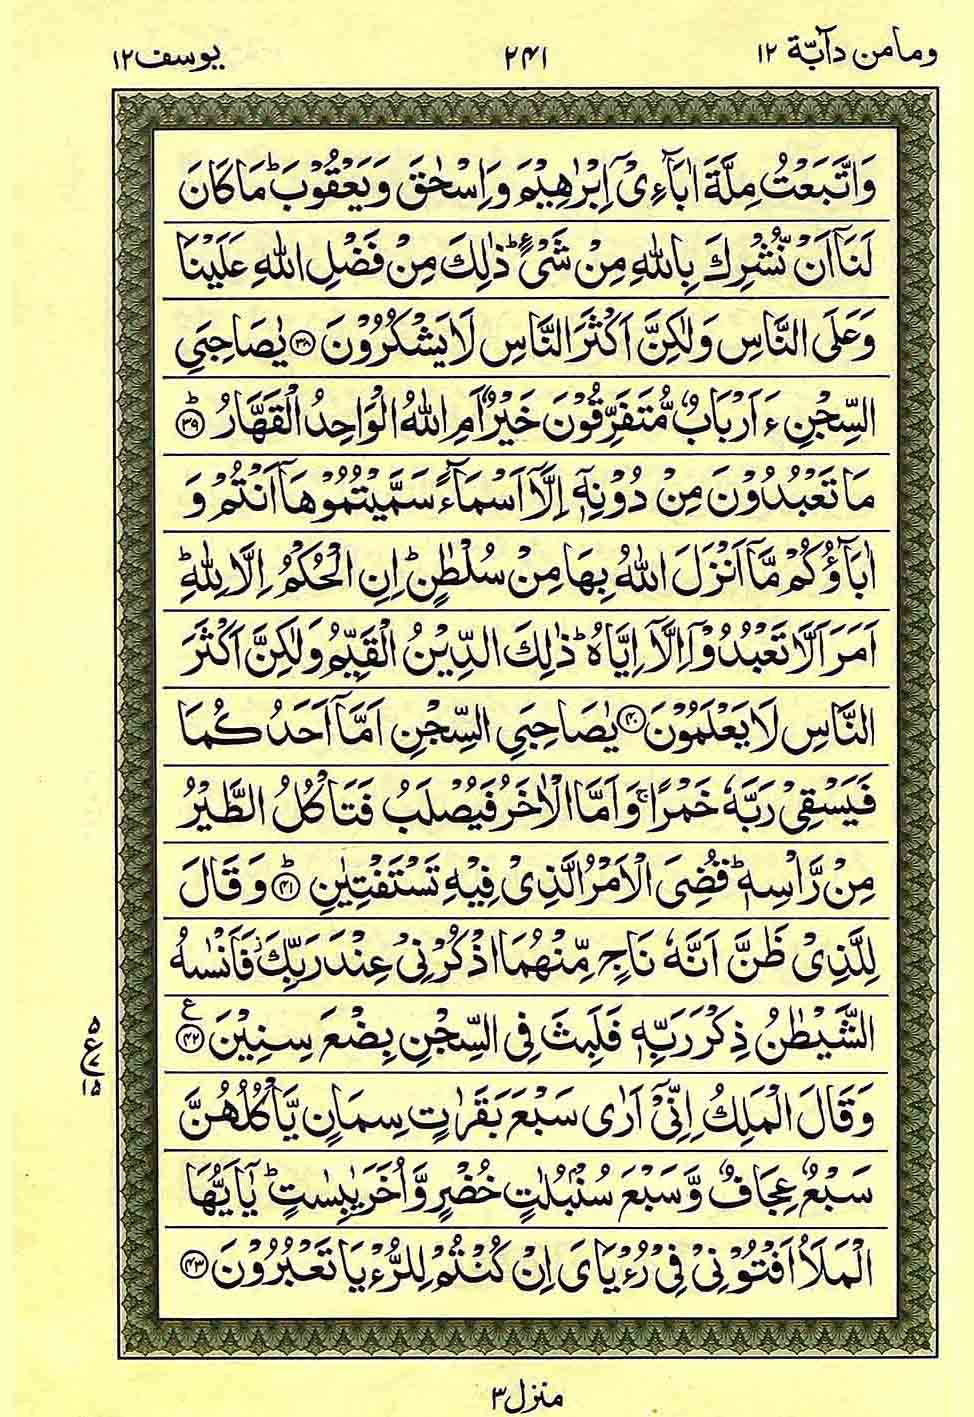 ومامن دآبّة ١٢
٢٤١
يوسف ١٢
وَاتَّبَعْتُ مِلَّةَ اٰبَآءِىْۤ اِبْرٰهِيْمَ وَاِسْحٰقَ وَيَعْقُوْبَ ؕ مَا كَانَ
لَنَاۤ اَنْ نُّشْرِكَ بِاللّٰهِ مِنْ شَىْءٍ ؕ ذٰلِكَ مِنْ فَضْلِ اللّٰهِ عَلَيْنَا
وَعَلَى النَّاسِ وَلٰكِنَّ اَكْثَرَ النَّاسِ لَا يَشْكُرُوْنَ ﴿٣٨﴾ يٰصَاحِبَىِ
السِّجْنِ ءَاَرْبَابٌ مُّتَفَرِّقُوْنَ خَيْرٌ اَمِ اللّٰهُ الْوَاحِدُ الْقَهَّارُ ؕ ﴿٣٩﴾
مَا تَعْبُدُوْنَ مِنْ دُوْنِهٖۤ اِلَّاۤ اَسْمَآءً سَمَّيْتُمُوْهَاۤ اَنْتُمْ وَ
اٰبَآؤُكُمْ مَّاۤ اَنْزَلَ اللّٰهُ بِهَا مِنْ سُلْطٰنٍ ؕ اِنِ الْحُكْمُ اِلَّا لِلّٰهِ ؕ
اَمَرَ اَلَّا تَعْبُدُوْۤا اِلَّاۤ اِيَّاهُ ؕ ذٰلِكَ الدِّيْنُ الْقَيِّمُ وَلٰكِنَّ اَكْثَرَ
النَّاسِ لَا يَعْلَمُوْنَ ﴿٤٠﴾ يٰصَاحِبَىِ السِّجْنِ اَمَّاۤ اَحَدُكُمَا
فَيَسْقِىْ رَبَّهٗ خَمْرًا ۚ وَاَمَّا الْاٰخَرُ فَيُصْلَبُ فَتَاْكُلُ الطَّيْرُ
مِنْ رَّاْسِهٖ ؕ قُضِىَ الْاَمْرُ الَّذِىْ فِيْهِ تَسْتَفْتِيٰنِ ؕ ﴿٤١﴾ وَقَالَ
لِلَّذِىْ ظَنَّ اَنَّهٗ نَاجٍ مِّنْهُمَا اذْكُرْنِىْ عِنْدَ رَبِّكَ ؗ فَاَنْسٰىهُ
الشَّيْطٰنُ ذِكْرَ رَبِّهٖ فَلَبِثَ فِى السِّجْنِ بِضْعَ سِنِيْنَ ﴿٤٢﴾ ع
٥
ع
٧
١٥
وَقَالَ الْمَلِكُ اِنِّىْۤ اَرٰى سَبْعَ بَقَرٰتٍ سِمَانٍ يَّاْكُلُهُنَّ
سَبْعٌ عِجَافٌ وَّسَبْعَ سُنْۢبُلٰتٍ خُضْرٍ وَّاُخَرَ يٰبِسٰتٍ ؕ يٰۤاَيُّهَا
الْمَلَاُ اَفْتُوْنِىْ فِىْ رُءْيَاىَ اِنْ كُنْتُمْ لِلرُّءْيَا تَعْبُرُوْنَ ﴿٤٣﴾
منزل ٣